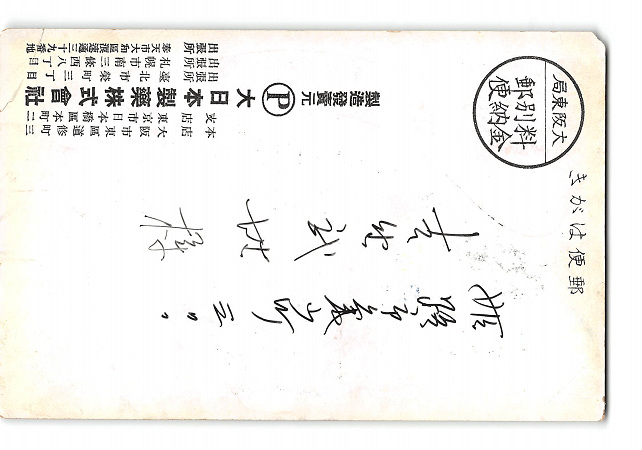 郵便はがき
大阪東局
料金
別納
郵便
姫路市
様
製造發賣元
大日本製藥株式會社
本店 大阪市東區道修町三
支店 東京市日本橋區本町二
出張所 臺北市榮町三丁目
出張所 札幌市南三條西八丁目
出張所 奉天市大和區浪速通三十九番地